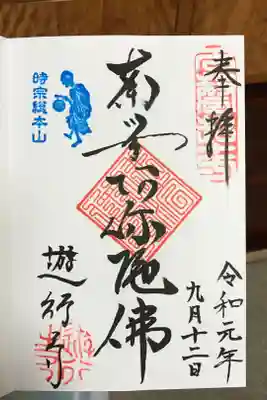 奉拝
令和元年
九月十二日
南无阿弥陀佛
時宗総本山
遊行寺